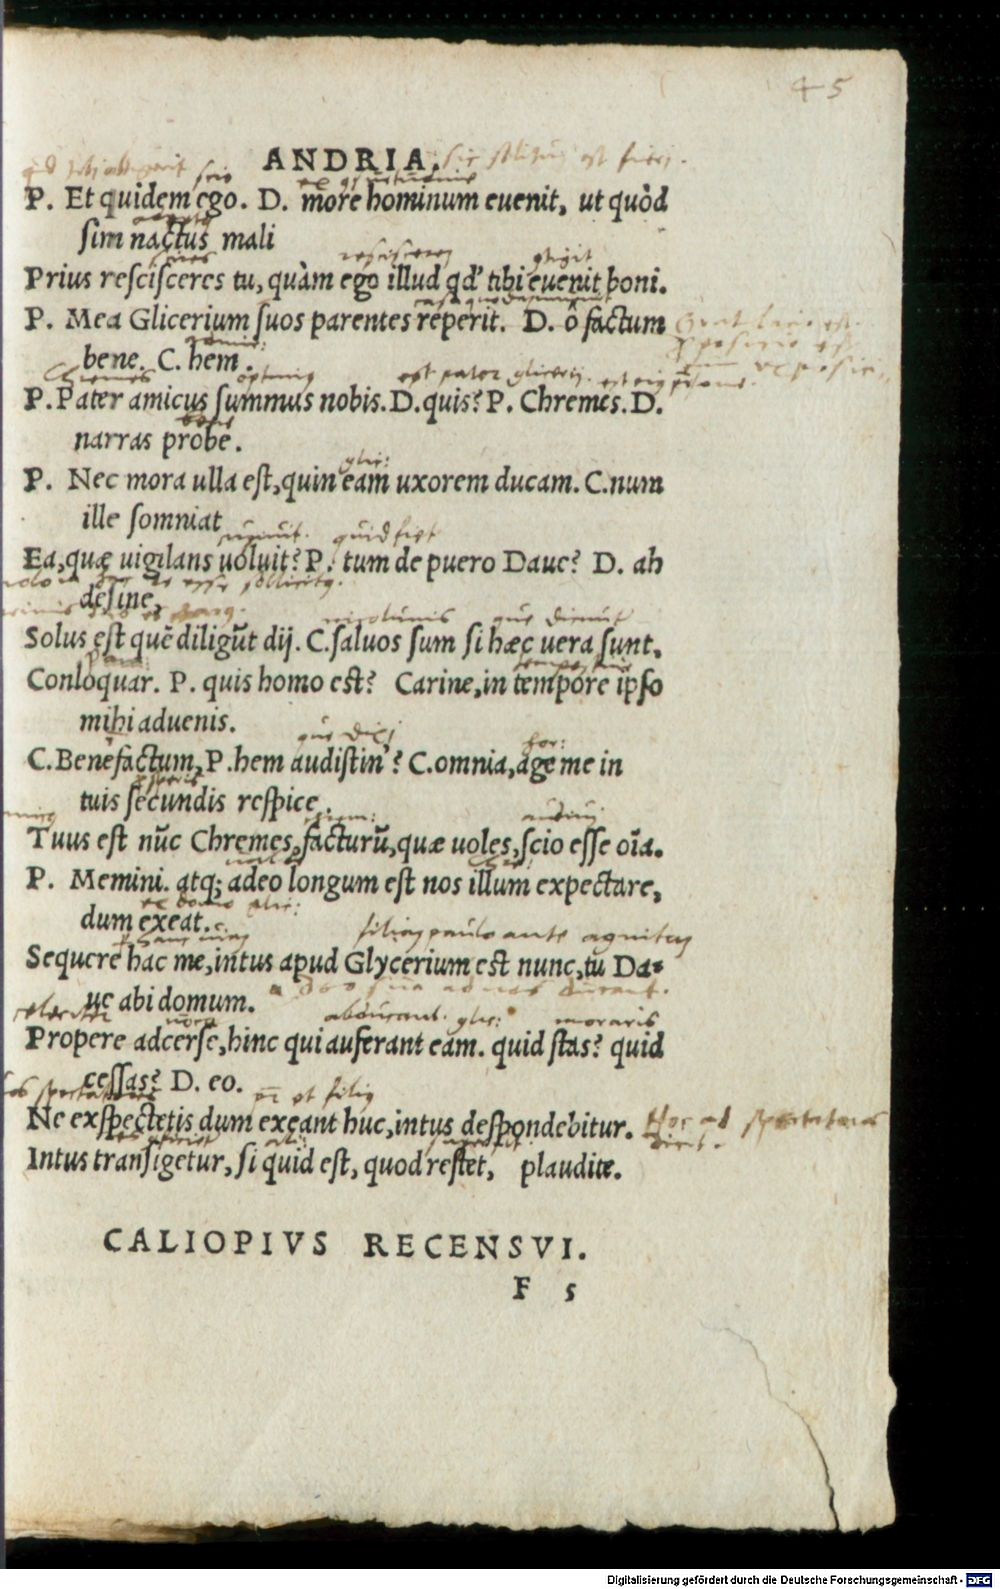 45
ANDRIA.
scio
P. Et quidem ego. D. more hominum euenit, ut quòd
sim nactus mali
resciscerem
Prius rescisceres tu, quàm ego illud qd' tibi euenit boni.
P. Mea Glicerium suos parentes reperit. D. ô factum
bene. C. hem.
Chremes optimus est pater glicerij.
P. Pater amicus summus nobis. D. quis? P. Chremes. D.
narras probe.
glic:
P. Nec mora ulla est, quin eam uxorem ducam. C. num
ille somniat
quid fiet
Ea, quæ uigilans uoluit? P. tum de puero Dauc? D. ah
desine,
que dicunt
Solus est quē diligūt dij. C. saluos sum si hæc uera sunt.
Conloquar. P. quis homo est? Carine, in tempore ipso
mihi aduenis.
que dixi
C. Benefactum, P. hem audistin'? C. omnia, age me in
tuis secundis respice.
Tuus est nūc Chremes, facturū, quæ uoles, scio esse oīa.
P. Memini. atq; adeo longum est nos illum expectare,
dum exeat.
filiam paulo ante agnitam
Sequere hac me, intus apud Glycerium est nunc, tu Da-
ue abi domum.
celeriter abducant. glic: moraris
Propere adcerse, hinc qui auferant eam. quid stas? quid
cessas? D. eo.
Ne exspectetis dum exeant huc, intus despondebitur. Hoc ad spectatores
dicit.
Intus transigetur, si quid est, quod restet, plaudite.
CALIOPIVS RECENSVI.
F 5
Digitalisierung gefördert durch die Deutsche Forschungsgemeinschaft - DFG